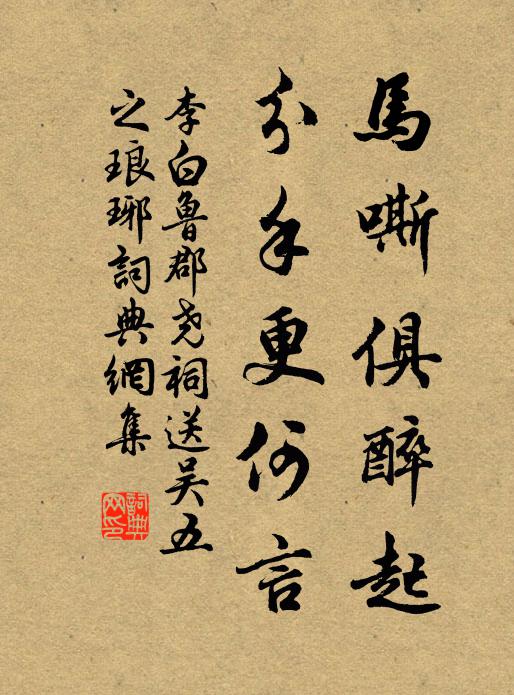 馬嘶俱醉起
分手更何言
李白魯郡尧祠送吴五
之琅琊詞典網集
詞典网印